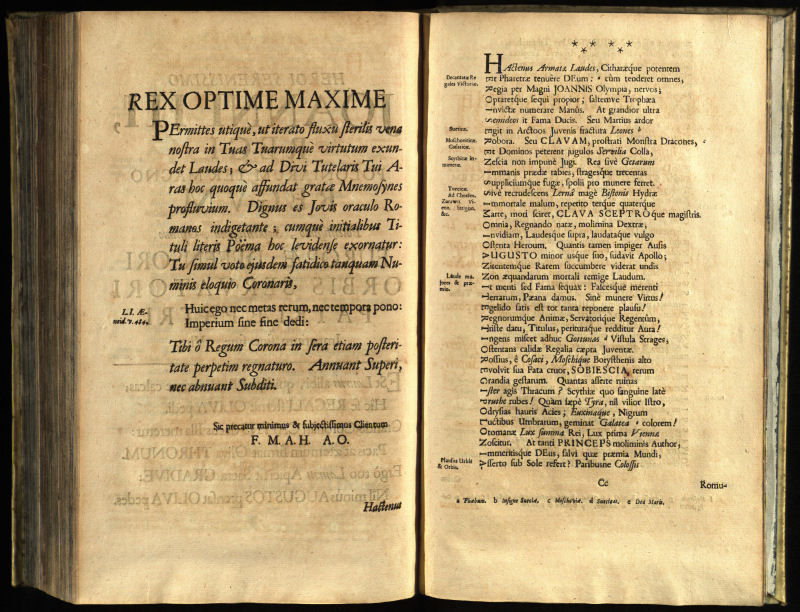 REX OPTIME MAXIME
PErmittes utiquè, ut iterato fluxu sterilis vena
nostra in Tuas Tuarumquè virtutum exun-
det Laudes; & ad Divi Tutelaris Tui A-
ras hoc quoquè affundat gratæ Mnemosynes
profluvium. Dignus es Jovis oraculo Ro-
manos indigetante; cumquè initialibus Ti-
tuli literis Poëma hoc levidense exornatur:
Tu simul voto ejusdem fatidico tanquam Nu-
minis eloquio Coronaris,
L. I. Æ-
neid. v. 484.
Huic ego nec metas rerum, nec tempora pono:
Imperium sine fine dedi:
Tibi ô Regum Corona in sera etiam posteri-
tate perpetim regnaturo. Annuant Superi,
nec abnuant Subditi.
Sic precatur minimus & subjectissimus Clientum
F. M. A. H. A. O.
Hactenus
** **
HActenus Armatæ Laudes, Citharæque potentem
Decantatæ Re
gales Victoriæ.
Pharetræ tenuère DEum: cùm tenderet omnes,
Regia per Magni JOANNIS Olympia, nervos;
Optaretque sequi propior; saltemve Trophæa
Invictæ numerare Manûs. At grandior ultra
it Fama Ducis. Seu Martius ardor
Suetica.
in Arctoos Juvenis fractura Leones
Moschoviticæ.
Cosacicæ.
Robora. Seu CLAVAM, prostrati Monstra Dracones,
Et Dominos peterent jugulos Servilia Colla,
Nescia non impune Jugi. Rea sivè Getarum
Immanis prædæ rabies, stragesque trecentas
Suppliciumque fugæ, spolii pro munere ferret.
Turcicæ.
Ad Chocim.
Sivè recrudescens Lerna magè Bistonis Hydræ
Immortale malum, repetito terque quaterque
&c.
Marte, mori sciret, CLAVA SCEPTROque magistris.
Omnia, Regnando natæ, molimina Dextræ,
Invidiam, Laudesque supra, laudataque vulgo
Ostenta Heroum. Quantis tamen impiger Ausis
AUGUSTO minor usque suo, sudavit Apollo;
Nitentemque Ratem succumbere viderat undis
Non æquandarum mortali remige Laudum.
Laude ma-
jores & præ-
mio.
menti sed Fama sequax: Fascesquè merenti
Terrarum, Pæana damus. Sinè munere Virtus!
satis est tot tanta reponere plausu!
Regnorumque Animæ, Servatorique Regentûm,
Triste datu, Titulus, perituraque redditur Aura!
Ingens miscet adhuc Gotunnas Vistula Strages,
Ostentans calidæ Regalia cæpta Juventæ.
Rossius, è Cosaci, Moschique Borysthenis alto
Involvit sua Fata cruor, SOBIESCIA, rerum
Grandia gestarum. Quantas asserte ruinas
Ister agis Thracum? Scythiæ quo sanguine latè
rube! Quàm sæpè Tyra, nil vilior Istro,
Odrysias hauris Acies; Euxinaque, Nigrum
Fluctibus Umbrarum, geminat Galatea colorem!
Otomanæ Lux summa Rei, Lux prima Viennæ
Noscitur. At tanti PRINCEPS moliminis Author,
Immeritisque DEus, salvi quæ præmia Mundi,
Plausus Urbis
& Orbis.
Asserto sub Sole refert? Paribusne Colossis
Cc
Romu-
a Phœbum. b Insigne Sueciæ. c Moschoviæ. d Sueciæ. e Dea Maris.